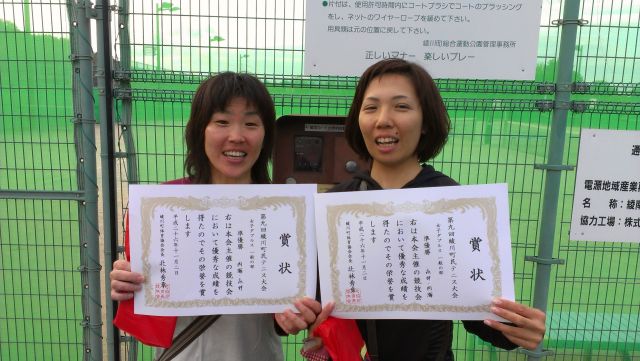 片付は、使用許可時間内にコートブラシでコートのブラッシング
をし、ネットのワイヤーロープを緩めて下さい。
用具類は元の位置に戻して下さい。
綾川町総合運動公園管理事務所
正しいマナー 楽しいプレー
電源地域産業
名称：綾
協力工場：株式
賞状
第九回綾川町民テニス大会
女子ダブルス一般の部
準優勝
右は本会主催の競技会
において優秀な成績を
得たのでその栄誉を賞
します
平成二十六年十一月二日
綾川町体育協会会長 北林秀章
賞状
第九回綾川町民テニス大会
女子ダブルス一般の部
準優勝
右は本会主催の競技会
において優秀な成績を
得たのでその栄誉を賞
します
平成二十六年十一月二日
綾川町体育協会会長 北林秀章